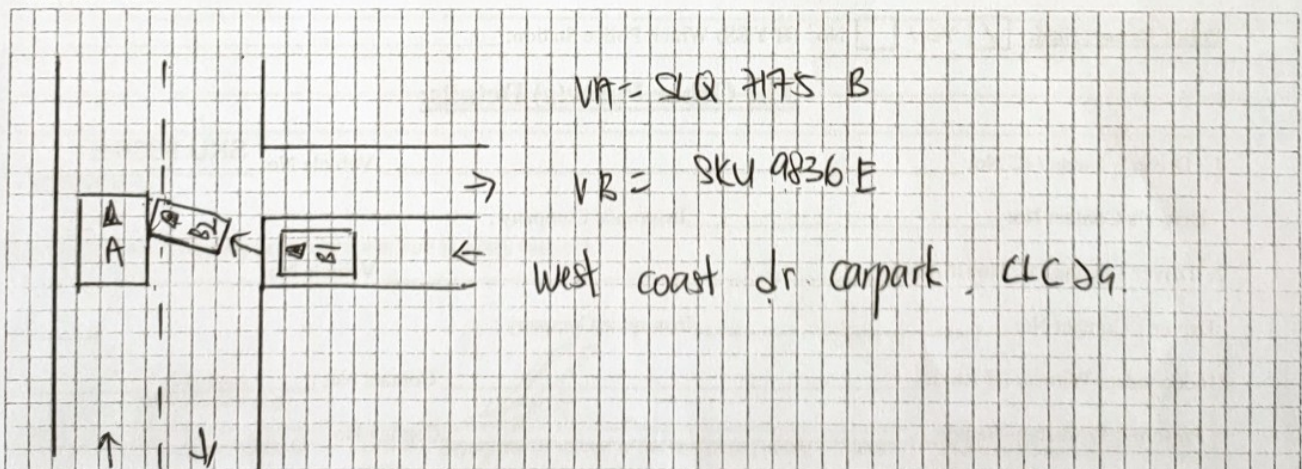 VA = SLQ 7175 B
VB = SKU 9836 E
West coast dr. carpark,
A
B2
B1